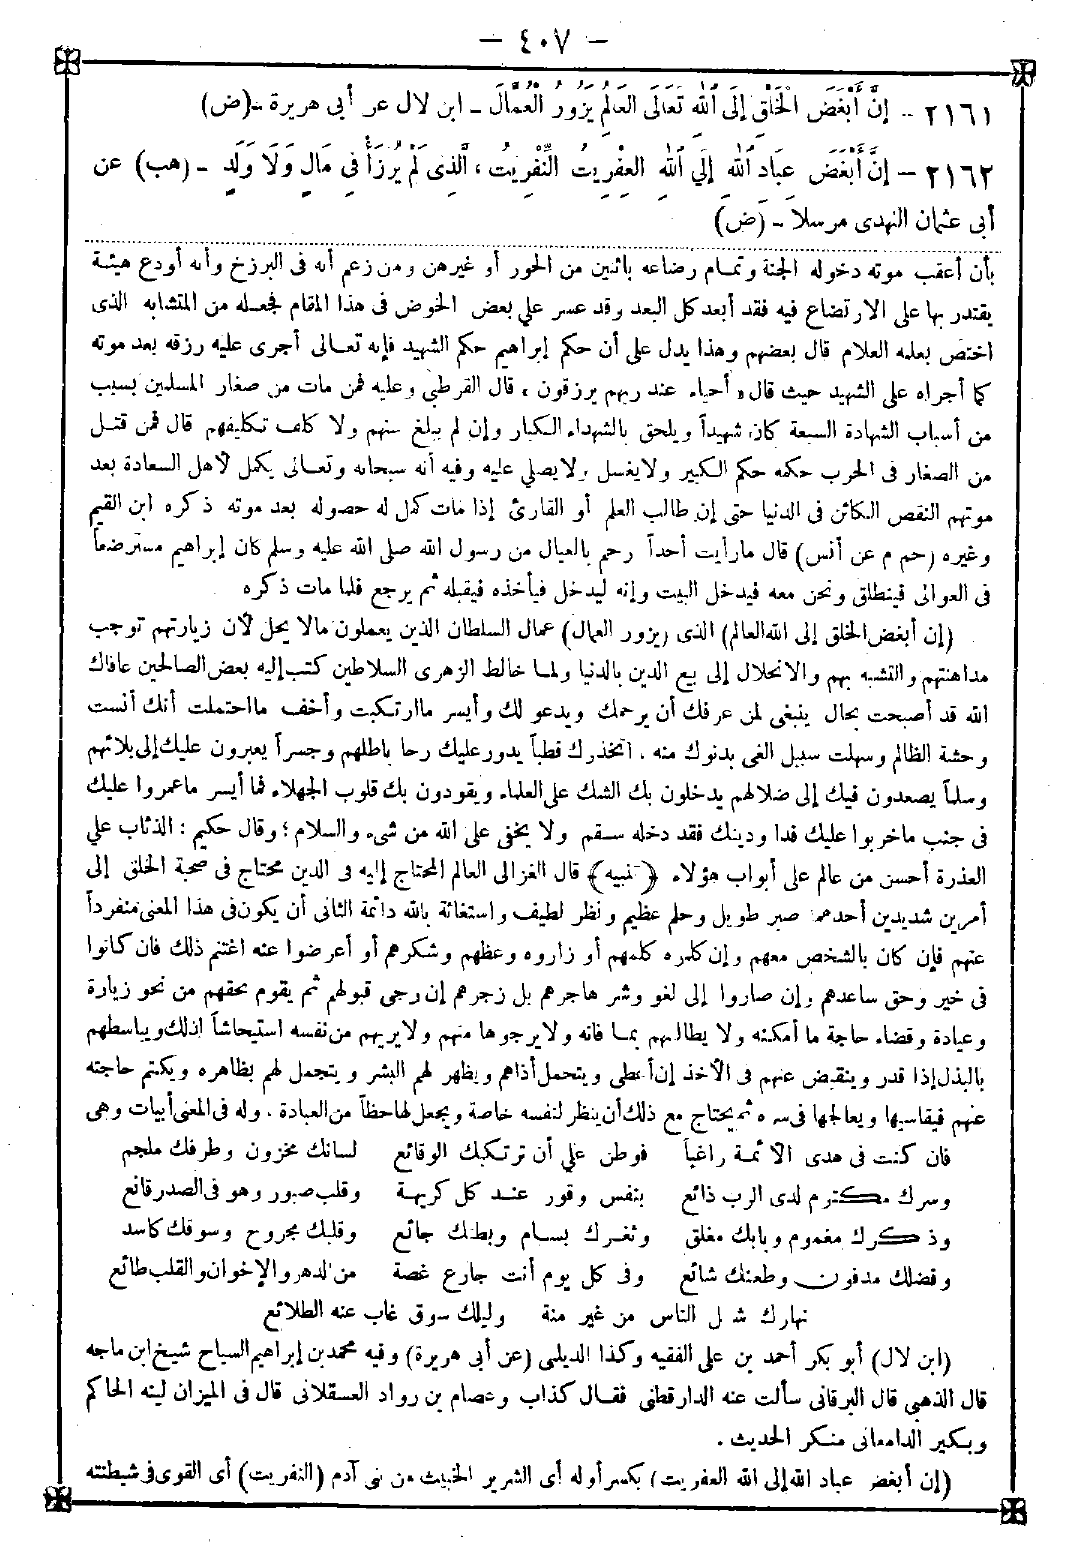 — ٤٠٧ —
٢١٦١ — إِنَّ أَبْغَضَ الْخَلْقِ إِلَى اللهِ تَعَالَى الْعَالِمُ يَزُورُ الْعُمَّالَ - ابن لال عن أبى هريرة - (ض)
٢١٦٢ — إِنَّ أَبْغَضَ عِبَادِ اللهِ إِلَى اللهِ الْعِفْرِيتُ النِّفْرِيتُ ، الَّذِى لَمْ يُرْزَأْ فِى مَالٍ وَلَا وَلَدٍ - (هب) عن
أبى عثمان النهدى مرسلا - (ض)
بأن أعقب موته دخوله الجنة وتمام رضاعه باثنين من الحور أو غيرهن ومن زعم أنه فى البرزخ وأنه أودع هيئة
يقتدر بها على الارتضاع فيه فقد أبعد كل البعد وقد عسر على بعض الخوض فى هذا المقام فجعله من المتشابه الذى
اختص بعلمه العلام قال بعضهم وهذا يدل على أن حكم إبراهيم حكم الشهيد فإنه تعالى أجرى عليه رزقه بعد موته
كما أجراه على الشهيد حيث قال « أحياء عند ربهم يرزقون ، قال القرطبى وعليه فمن مات من صغار المسلمين بسبب
من أسباب الشهادة السبعة كان شهيداً ويلحق بالشهداء الكبار وإن لم يبلغ سنهم ولا كلف تكليفهم قال فمن قتل
من الصغار فى الحرب حكمه حكم الكبير ولايغسل ولايصلى عليه وفيه أنه سبحانه وتعالى يكمل لأهل السعادة بعد
موتهم النقص الكائن فى الدنيا حتى إن طالب العلم أو القارئ إذا مات كمل له حصوله بعد موته ذكره ابن القيم
وغيره (حم م عن أنس) قال مارأيت أحداً رحم بالعيال من رسول الله صلى الله عليه وسلم كان إبراهيم مسترضعاً
فى العوالى فينطلق ونحن معه فيدخل البيت وإنه ليدخل فيأخذه فيقبله ثم يرجع فلما مات ذكره
(إن أبغض الخلق إلى الله العالم) الذى (يزور العمال) عمال السلطان الذين يعملون مالا يحل لأن زيارتهم توجب
مداهنتهم والتشبه بهم والانحلال إلى بيع الدين بالدنيا ولما خالط الزهرى السلاطين كتب إليه بعض الصالحين عافاك
الله قد أصبحت بحال ينبغى لمن عرفك أن يرحمك ويدعو لك وأيسر ماارتكبت وأخف مااحتملت أنك أنست
وحشة الظالم وسهلت سبيل الغى بدنوك منه . اتخذرك قطباً يدور عليك رحا باطلهم وجسراً يعبرون عليك إلى بلائهم
وسلماً يصعدون فيك إلى ضلالهم يدخلون بك الشك على العلماء ويقودون بك قلوب الجهلاء فما أيسر ماعمروا عليك
فى جنب ماخربوا عليك فدا ودينك فقد دخله سقم ولا يخفى على الله من شىء والسلام ؛ وقال حكيم : الذئاب على
العذرة أحسن من عالم على أبواب هؤلاء (تنبيه) قال الغزالى العالم المحتاج إليه فى الدين محتاج فى صحبة الخلق إلى
أمرين شديدين أحدهما صبر طويل وحلم عظيم ونظر لطيف واستغاثة بالله دائمة الثانى أن يكون فى هذا المعنى منفرداً
عنهم فإن كان بالشخص معهم وإن كلموه كلمهم أو زاروه وعظهم وشكرهم أو أعرضوا عنه اغتنم ذلك فان كانوا
فى خير وحق ساعدهم وإن صاروا إلى لغو وشر هاجرهم بل زجرهم إن رجى قبولهم ثم يقوم بحقهم من نحو زيارة
وعيادة وقضاء حاجة ما أمكنه ولا يطالبهم بما فاته ولايرجوها منهم ولايريهم من نفسه استيحاشاً لذلك ويباسطهم
بالبذل إذا قدر وينقبض عنهم فى الأخذ إن أعطى ويتحمل أذاهم ويظهر لهم البشر ويتجمل لهم بظاهره ويكتم حاجته
عنهم فيقاسيها ويعالجها فى سره ثم يحتاج مع ذلك أن ينظر لنفسه خاصة ويجعل لها حظاً من العبادة . وله فى المعنى أبيات وهى
فان كنت فى هدى الأئمة راغباً فوطن على أن ترتكبك الوقائع لسانك مخزون وطرفك ملجم
وسرك مكتوم لدى الرب ذائع بنفس وقور عند كل كريهة وقلب صبور وهو فى الصدر قانع
وذكرك مغموم وبابك مغلق وثغرك بسام وبطنك جائع وقلبك مجروح وسوقك كاسد
وفضلك مدفون وطعنك شائع وفى كل يوم أنت جارع غصة من الدهر والإخوان والقلب طائع
نهارك شغل الناس من غير منة وليلك سوق غاب عنه الطلائع
(ابن لال) أبو بكر أحمد بن على الفقيه وكذا الديلمى (عن أبى هريرة) وفيه محمد بن إبراهيم السياح شيخ ابن ماجه
قال الذهبى قال البرقانى سألت عنه الدارقطنى فقال كذاب وعصام بن رواد العسقلانى قال فى الميزان لينه الحاكم
وبكير الدامغانى منكر الحديث .
(إن أبغض عباد الله إلى الله العفريت) بكسر أوله أى الشرير الخبيث من بنى آدم (النفريت) أى القوى فى شيطنته